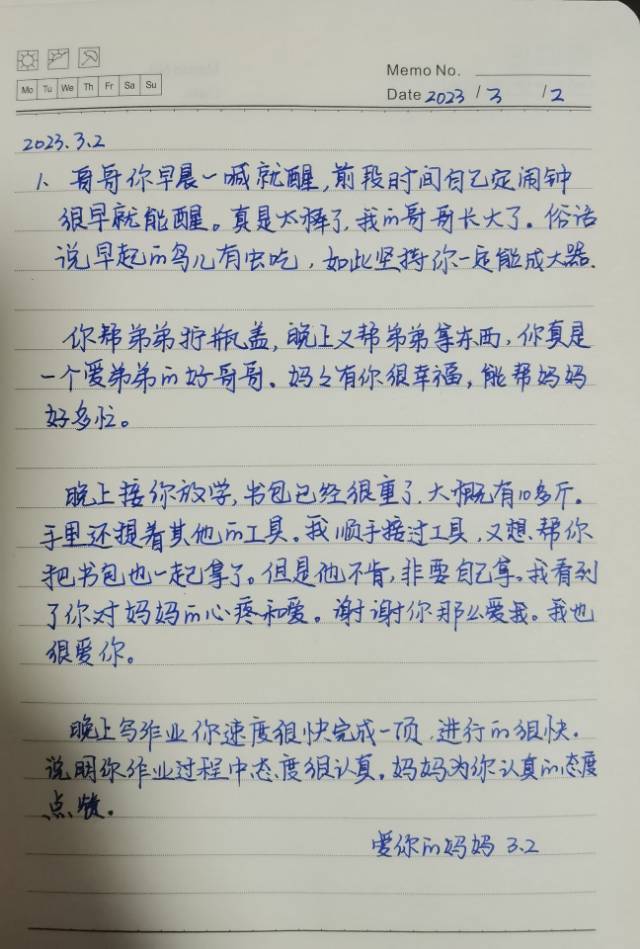 Mo Tu We Th Fr Sa Su
Memo No.
Date 2023 / 3 / 2
2023.3.2
1、哥哥你早晨一喊就醒,前段时间自己定闹钟
很早就能醒。真是太棒了,我的哥哥长大了。俗话
说早起的鸟儿有虫吃,如此坚持你一定能成大器.
你帮弟弟拧瓶盖,晚上又帮弟弟拿东西,你真是
一个爱弟弟的好哥哥。妈々有你很幸福,能帮妈妈
好多忙。
晚上接你放学,书包已经很重了.大概有10多斤。
手里还提着其他的工具。我顺手接过工具,又想帮你
把书包也一起拿了。但是他不肯,非要自己拿。我看到
了你对妈妈的心疼和爱。谢谢你那么爱我。我也
很爱你。
晚上写作业你速度很快完成一项,进行的很快.
说明你作业过程中态度很认真。妈妈为你认真的态度
点赞.
爱你的妈妈 3.2